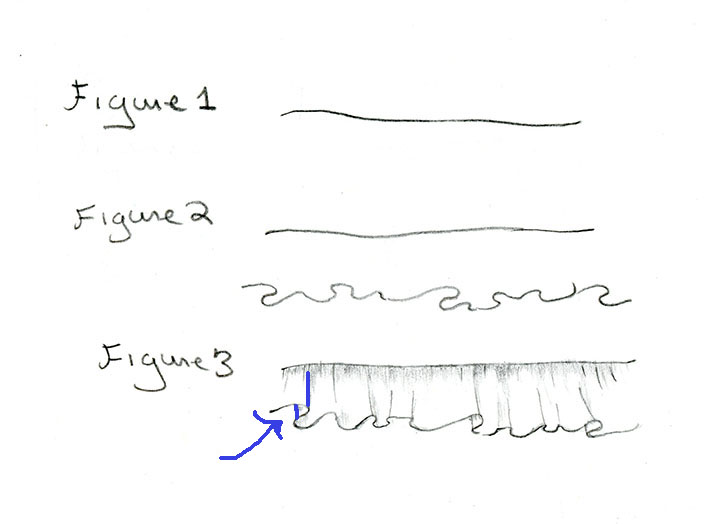 Figure 1
Figure 2
Figure 3